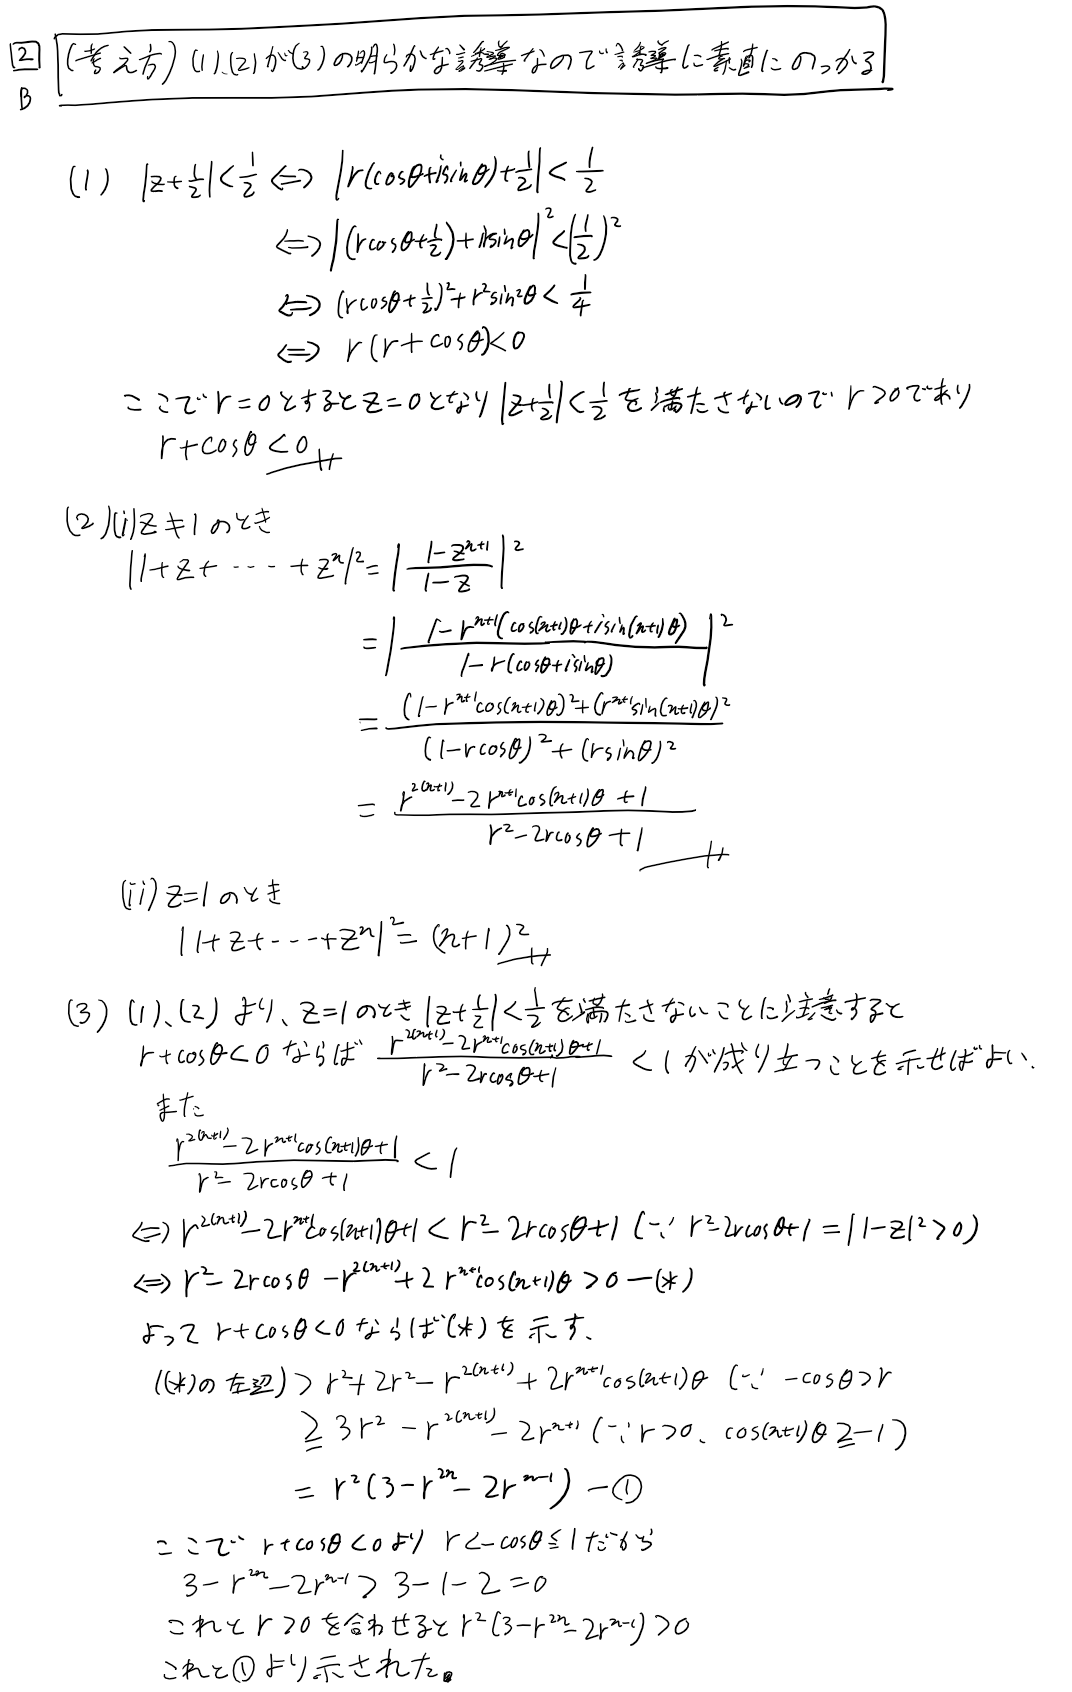 2 B (考え方) (1)、(2)が(3)の明らかな誘導なので誘導に素直にのっかる
(1) |z+1/2|<1/2 ⇔ |r(cosθ+isinθ)+1/2|<1/2
⇔ |(rcosθ+1/2)+irsinθ|^2<(1/2)^2
⇔ (rcosθ+1/2)^2+r^2sin^2θ<1/4
⇔ r(r+cosθ)<0
ここでr=0とするとz=0となり|z+1/2|<1/2を満たさないのでr>0であり
r+cosθ<0
(2)(i)z≠1のとき
|1+z+・・・+z^n|^2=|(1-z^{n+1})/(1-z)|^2
=|(1-r^{n+1}(cos(n+1)θ+isin(n+1)θ))/(1-r(cosθ+isinθ))|^2
=((1-r^{n+1}cos(n+1)θ)^2+(r^{n+1}sin(n+1)θ)^2)/((1-rcosθ)^2+(rsinθ)^2)
=(r^{2(n+1)}-2r^{n+1}cos(n+1)θ+1)/(r^2-2rcosθ+1)
(ii)z=1のとき
|1+z+・・・+z^n|^2=(n+1)^2
(3) (1)、(2)より、z=1のとき|z+1/2|<1/2を満たさないことに注意すると
r+cosθ<0ならば (r^{2(n+1)}-2r^{n+1}cos(n+1)θ+1)/(r^2-2rcosθ+1) <1が成り立つことを示せばよい.
また
(r^{2(n+1)}-2r^{n+1}cos(n+1)θ+1)/(r^2-2rcosθ+1) <1
⇔ r^{2(n+1)}-2r^{n+1}cos(n+1)θ+1<r^2-2rcosθ+1 (∵ r^2-2rcosθ+1=|1-z|^2>0)
⇔ r^2-2rcosθ-r^{2(n+1)}+2r^{n+1}cos(n+1)θ>0 —(*)
よってr+cosθ<0ならば(*)を示す、
((*)の左辺)>r^2+2r^2-r^{2(n+1)}+2r^{n+1}cos(n+1)θ (∵ -cosθ>r
≧3r^2-r^{2(n+1)}-2r^{n+1} (∵r>0、cos(n+1)θ≧-1)
=r^2(3-r^{2n}-2r^{n-1}) —①
ここで r+cosθ<0より r<-cosθ≦1だから
3-r^{2n}-2r^{n-1}>3-1-2=0
これとr>0を合わせるとr^2(3-r^{2n}-2r^{n-1})>0
これと①より示された。